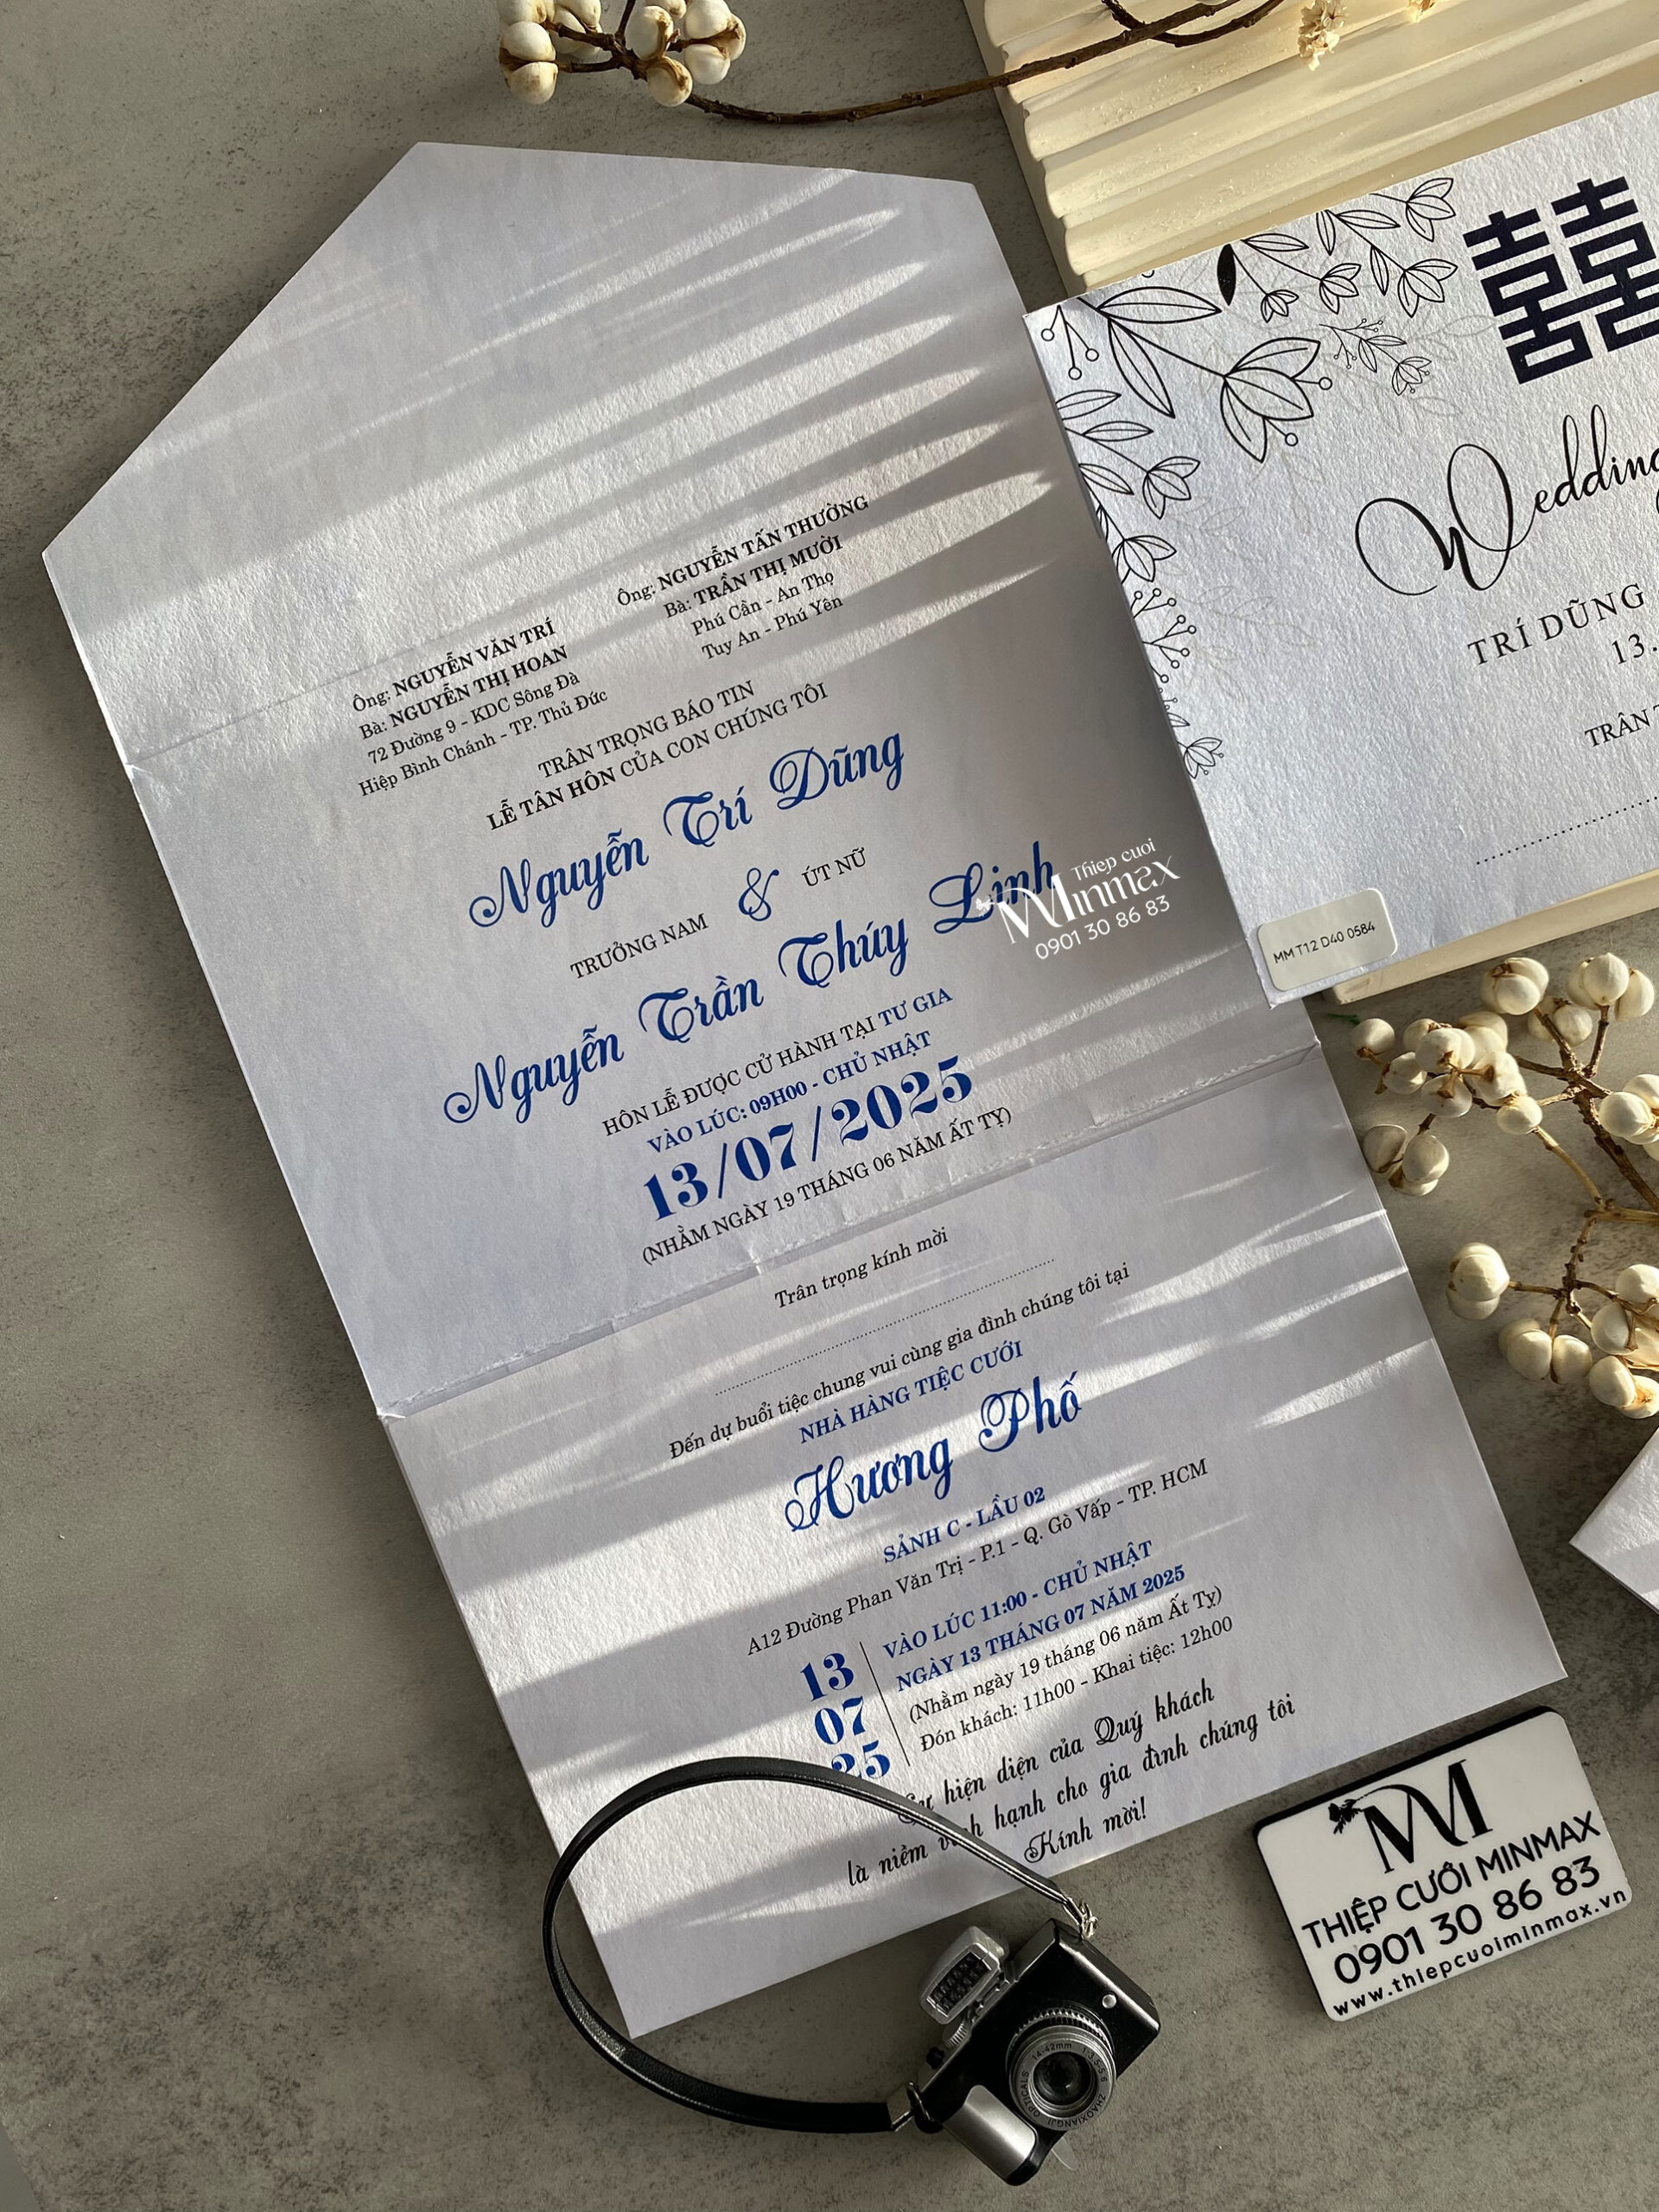 Ông: NGUYỄN VĂN TRÍ
Bà: NGUYỄN THỊ HOAN
72 Đường 9 - KDC Sông Đà
Hiệp Bình Chánh - TP. Thủ Đức
Ông: NGUYỄN TẤN THƯỜNG
Bà: TRẦN THỊ MƯỜI
Phú Cần - An Thọ
Tuy An - Phú Yên
TRÂN TRỌNG BÁO TIN
LỄ TÂN HÔN CỦA CON CHÚNG TÔI
Nguyễn Trí Dũng
TRƯỞNG NAM & ÚT NỮ
Nguyễn Trần Thúy Linh
HÔN LỄ ĐƯỢC CỬ HÀNH TẠI TƯ GIA
VÀO LÚC: 09H00 - CHỦ NHẬT
13/07/2025
(NHẰM NGÀY 19 THÁNG 06 NĂM ẤT TỴ)
Trân trọng kính mời
Đến dự buổi tiệc chung vui cùng gia đình chúng tôi tại
NHÀ HÀNG TIỆC CƯỚI
Hương Phố
SẢNH C - LẦU 02
A12 Đường Phan Văn Trị - P.1 - Q. Gò Vấp - TP. HCM
13
07
25
VÀO LÚC 11:00 - CHỦ NHẬT
NGÀY 13 THÁNG 07 NĂM 2025
(Nhằm ngày 19 tháng 06 năm Ất Tỵ)
Đón khách: 11h00 - Khai tiệc: 12h00
Sự hiện diện của Quý khách
là niềm vinh hạnh cho gia đình chúng tôi
Kính mời!
Thiep cuoi
Minmax
0901 30 86 83
囍
Wedding
TRÍ DŨNG
13.
TRÂN
MM T12 D40 0584
M
THIỆP CƯỚI MINMAX
0901 30 86 83
www.thiepcuoiminmax.vn
14-42mm 1:3.5-5.6 ZHAOXIANGJI OPTICALS